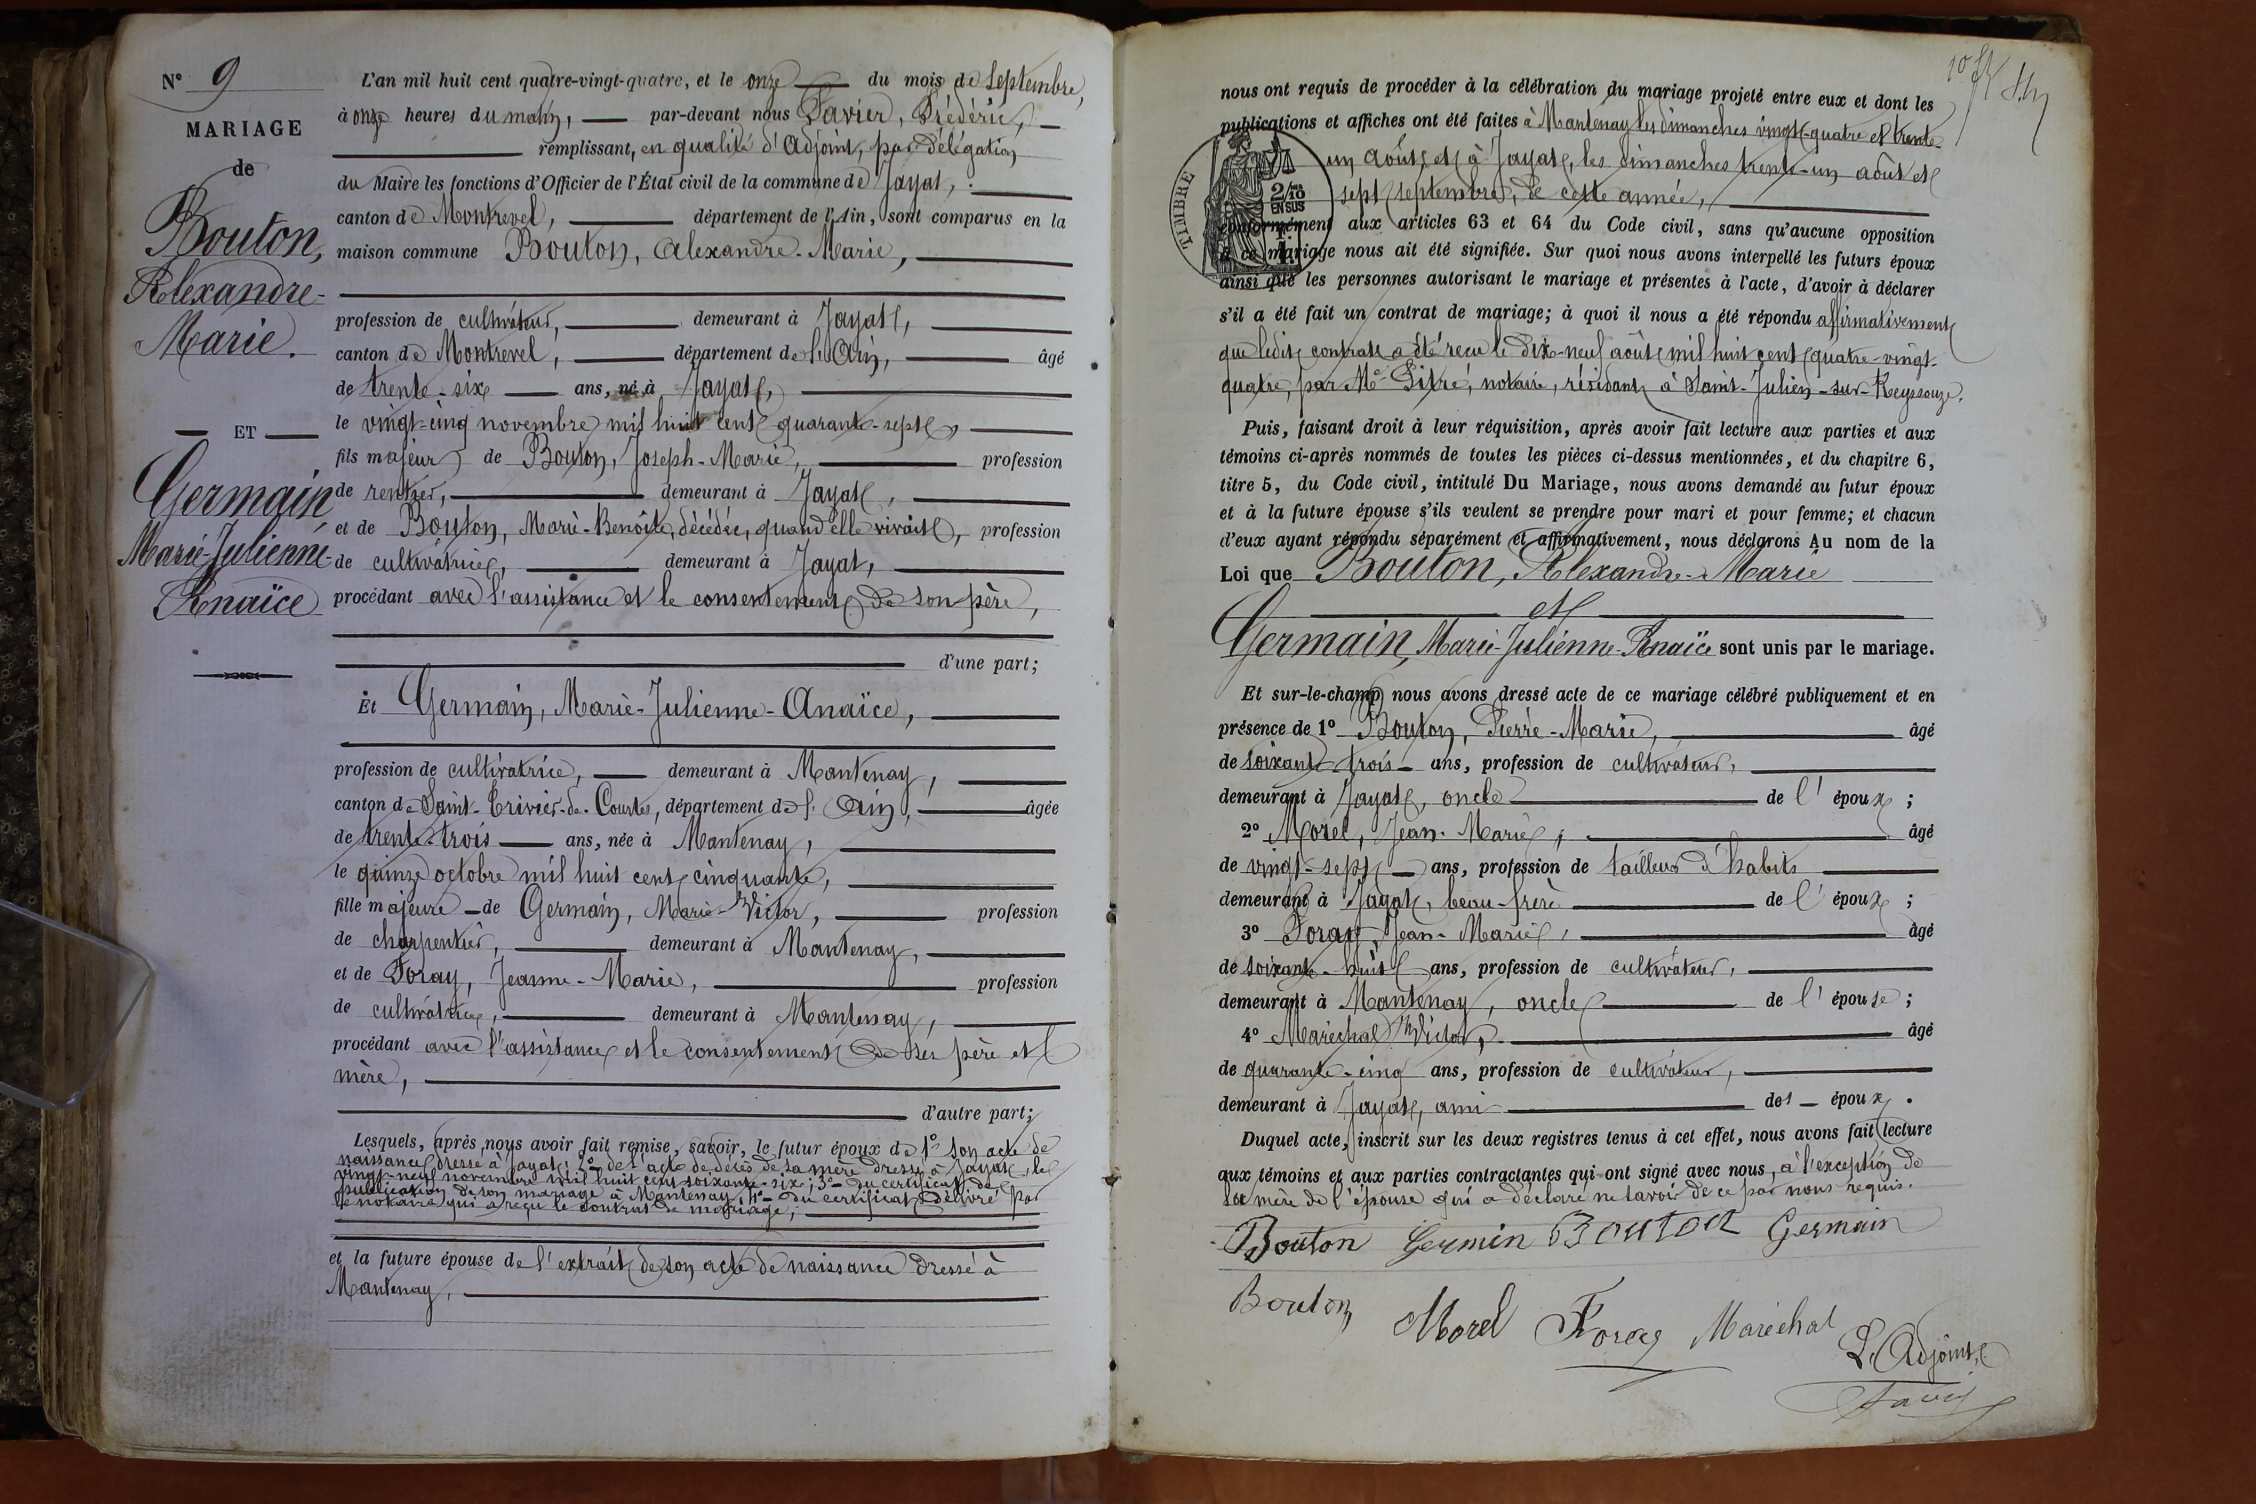 N° 9
MARIAGE
de
Bouton,
Alexandre-
Marie.
ET
Germain
Marie-Julienne-
Anaïce
L'an mil huit cent quatre-vingt-quatre, et le onze du mois de Septembre,
à onze heures du matin, par-devant nous Favier, Frédéric,
remplissant, en qualité d'Adjoint, par délégation
du Maire les fonctions d'Officier de l'État civil de la commune de Jayat,
canton de Montrevel, département de l'Ain, sont comparus en la
maison commune Bouton, Alexandre-Marie,
profession de cultivateur, demeurant à Jayat,
canton de Montrevel, département de l'Ain, âgé
de trente-six ans, né à Jayat,
le vingt-cinq novembre mil huit cent quarante-sept,
fils majeur de Bouton, Joseph-Marie, profession
de rentier, demeurant à Jayat,
et de Bouton, Marie-Benoîte, décédée, quand elle vivait, profession
de cultivatrice, demeurant à Jayat,
procédant avec l'assistance et le consentement de son père,
d'une part;
Et Germain, Marie-Julienne-Anaïce,
profession de cultivatrice, demeurant à Mantenay,
canton de Saint-Trivier-de-Courtes, département de l'Ain, âgée
de trente-trois ans, née à Mantenay,
le quinze octobre mil huit cent cinquante,
fille majeure de Germain, Marie-Victor, profession
de charpentier, demeurant à Mantenay,
et de Foray, Jeanne-Marie, profession
de cultivatrice, demeurant à Mantenay,
procédant avec l'assistance et le consentement de ses père et
mère,
d'autre part;
Lesquels, après nous avoir fait remise, savoir, le futur époux de 1° son acte de
naissance dressé à Jayat; 2° de l'acte de décès de sa mère dressé à Jayat, le
vingt-neuf novembre mil huit cent soixante-six; 3° du certificat de
publication de son mariage à Mantenay; 4° du certificat délivré par
le notaire qui a reçu le contrat de mariage;
et la future épouse de l'extrait de son acte de naissance dressé à
Mantenay,
nous ont requis de procéder à la célébration du mariage projeté entre eux et dont les
publications et affiches ont été faites à Mantenay les dimanches vingt-quatre et trente-
un août, et à Jayat, les dimanches trente-un août et
sept septembre, de cette année,
TIMBRE
2/10
EN SUS
conformément aux articles 63 et 64 du Code civil, sans qu'aucune opposition
à ce mariage nous ait été signifiée. Sur quoi nous avons interpellé les futurs époux
ainsi que les personnes autorisant le mariage et présentes à l'acte, d'avoir à déclarer
s'il a été fait un contrat de mariage; à quoi il nous a été répondu affirmativement
que ledit contrat a été reçu le dix-neuf août mil huit cent quatre-vingt-
quatre, par Me Pitre, notaire, résidant à Saint-Julien-sur-Reyssouze.
Puis, faisant droit à leur réquisition, après avoir fait lecture aux parties et aux
témoins ci-après nommés de toutes les pièces ci-dessus mentionnées, et du chapitre 6,
titre 5, du Code civil, intitulé Du Mariage, nous avons demandé au futur époux
et à la future épouse s'ils veulent se prendre pour mari et pour femme; et chacun
d'eux ayant répondu séparément et affirmativement, nous déclarons Au nom de la
Loi que Bouton, Alexandre-Marie
et
Germain, Marie-Julienne-Anaïce sont unis par le mariage.
Et sur-le-champ nous avons dressé acte de ce mariage célébré publiquement et en
présence de 1° Bouton, Pierre-Marie, âgé
de soixante-trois ans, profession de cultivateur,
demeurant à Jayat, oncle de l'époux;
2° Morel, Jean-Marie, âgé
de vingt-sept ans, profession de tailleur d'habits
demeurant à Jayat, beau-frère de l'époux;
3° Foray, Jean-Marie, âgé
de soixante-huit ans, profession de cultivateur,
demeurant à Mantenay, oncle de l'épouse;
4° Maréchal Victor, âgé
de quarante-cinq ans, profession de cultivateur,
demeurant à Jayat, ami des époux.
Duquel acte, inscrit sur les deux registres tenus à cet effet, nous avons fait lecture
aux témoins et aux parties contractantes qui ont signé avec nous, à l'exception de
la mère de l'épouse qui a déclaré ne savoir de ce par nous requis.
Bouton Germin Bouton Germain
Bouton Morel Foray Maréchal
L'Adjoint,
Favier